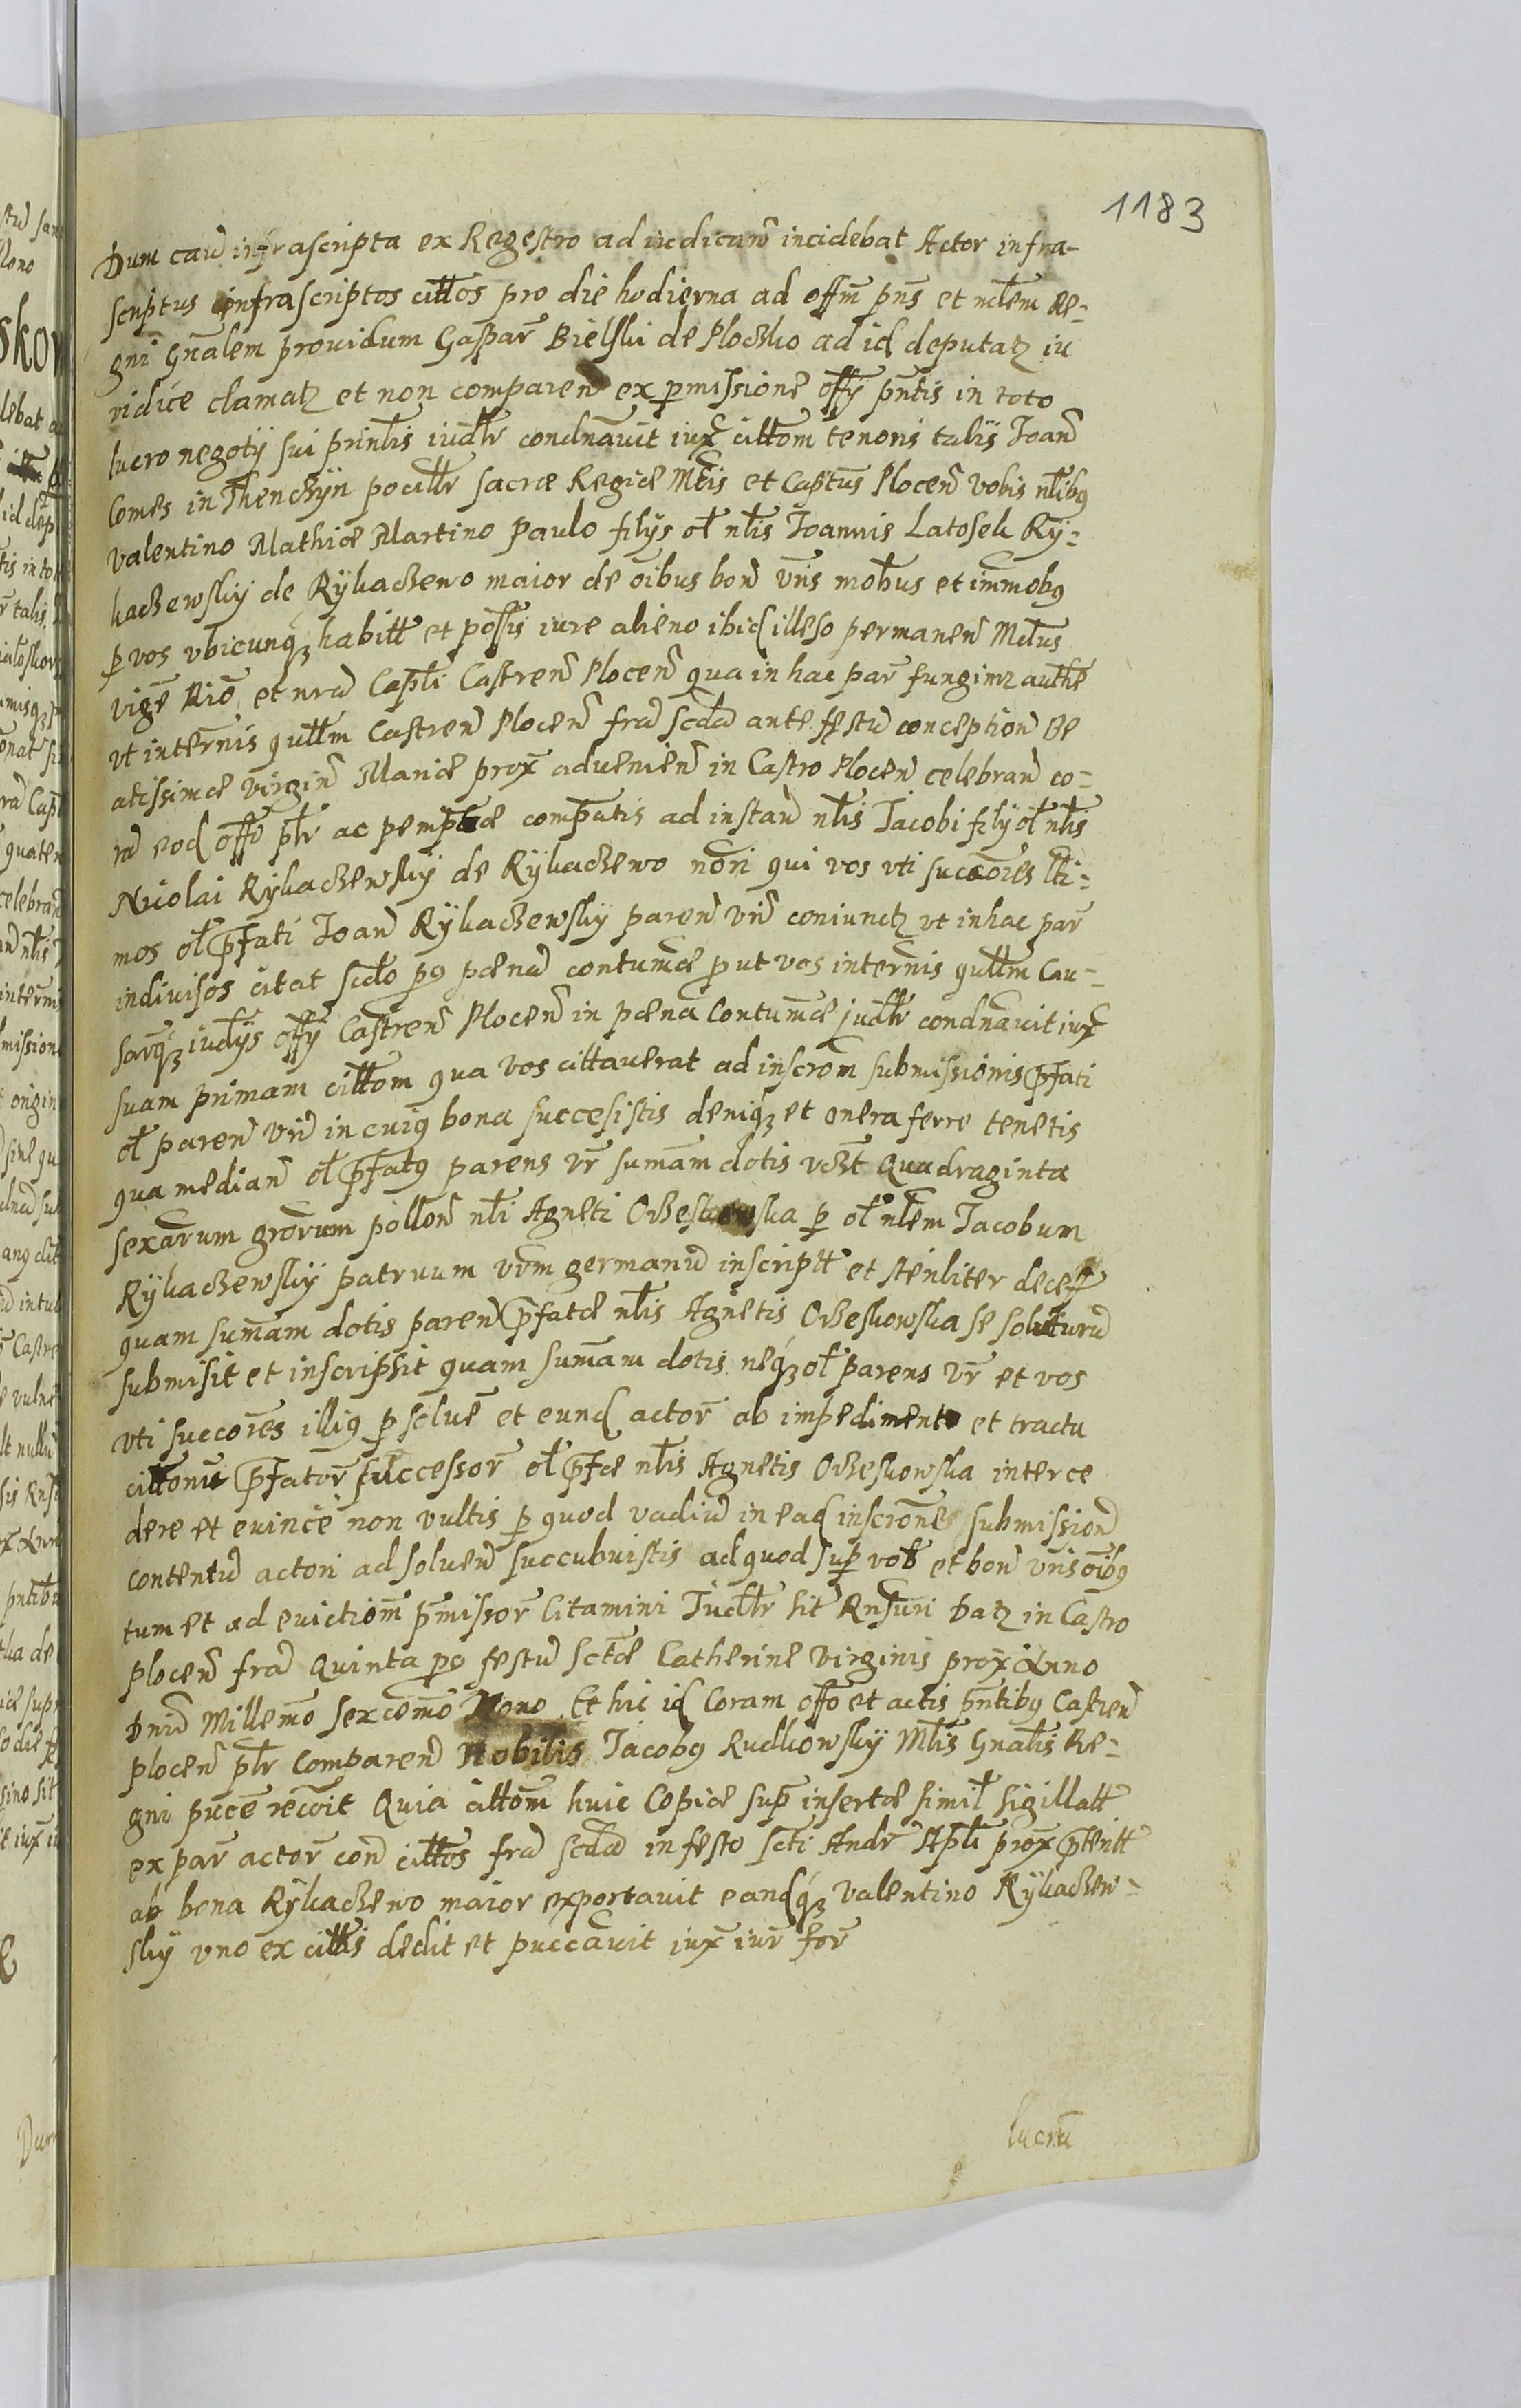 1183
Dum cau͂ infrascripta ex Regestro ad iudican͂ incidebat Actor infra-
scriptus infrascriptos cittos pro die hodierna ad offm̃ pn̄s et mltem Re-
gni Gnālem prouidum Gaspar͂ Bielski de Ploczko ad id deputatʒ iu
ridice clamatʒ et non comparen͂ ex pmissione offy pn̄tis in toto
lucro negotÿ sui prinlis iudltr condnāuit iux cittom tenoris talis Joan͂
Comes in Thenczÿn pocilltr sacræ Regiæ Mtis et Captus Plocen͂ vobis nłibus
Valentino Mathiæ Martino Paulo filÿs oł nłis Joannis Latosek Ry-
kaczewskÿ de Rÿkaczewo maior de oībus bon͂ vrīs mobus et immobus
p vos vbicunqʒ habitt et possis iure alieno ibid illeso permanen͂ Mltus
vigē Rio͂ et nra͂ Capłi Castren͂ Plocen͂ qua in hac par͂ fungimr authe
vt internis qultm Castren͂ Plocen͂ fra͂ scda͂ ante festu͂ conception͂ Be
atissimæ virgin͂ Mariæ prox͂ aduenien͂ in Castro Plocen͂ celebran͂ co-
ra͂ eod offo pltr ac pemptæ compatis ad instan͂ nłis Jacobi filÿ oł nłis
Nicolai Rÿkaczewskÿ de Rÿkaczewo nori qui vos vti succores ltti-
mos oł pfati Joan͂ Rÿkaczewskÿ paren͂ vri͂ coniunctʒ vt in hac par͂
indiuisos citat scdo po pæna͂ contumæ p ut vos internis qultm Cau-
sarqʒ iudÿs offÿ Castren͂ Plocen͂ in pæna Contumæ judltr condnāuit iux
suam primam cittom qua vos cittauerat ad inscrom submissionis pfati
oł paren͂ vri͂ in cuius bona successistis deniqʒ et onera ferre tenetis
qua median͂ oł pfatus parens vr͂ sumam dotis vdzt Quadraginta
sexarum grorum pollon͂ nłi Agneti Orzeskowska p oł nłem Jacobum
Rÿkaczewskÿ patruum vrm germanu͂ inscriptt et stenliter decess
quam sumam dotis paren͂ pfatæ nłis Agnetis Orzeskowska se soluturu͂
submisit et inscripsit quam sumam dotis neqʒ oł parens vr͂ et vos
vti succores illius p solue͂ et eund actor͂ ab impedimento et tractu
cittonu͂ pfator͂ successor͂ oł pfæ nłis Agnetis Orzeskowska interce
dere et euince͂ non vultis p quod vadiu͂ in ead inscrone submission͂
contentu͂ actori ad soluen͂ succubuistis ad quod sup vob et bon͂ vris oibus
tum et ad euictiom pmissor͂ Citamini Judltr sit Rnsuri Datʒ in Castro
Plocen͂ fra͂ Quinta po festu͂ sctæ Catherine Virginis prox Anno
Dni͂ Millemo sexcemo Nono Et hic id Coram offo et actis pntibus Castren͂
Plocen͂ pltr Comparen͂ Nobilis Jacobus Rudkowskÿ Mlis Gnalis Re-
gni puce͂ recoit Quia cittom huic Copiæ sup insertæ simil sigillatt
ex par͂ actor͂ con͂ cittos fra͂ scda͂ in festo scti Andr͂ Apłi prox pteritt
ab bona Rÿkaczewo maior exportauit eandqʒ Valentino Rÿkaczew-
skÿ vno ex cittis dedit et puccauit iux iur͂ for͂
lucru͂